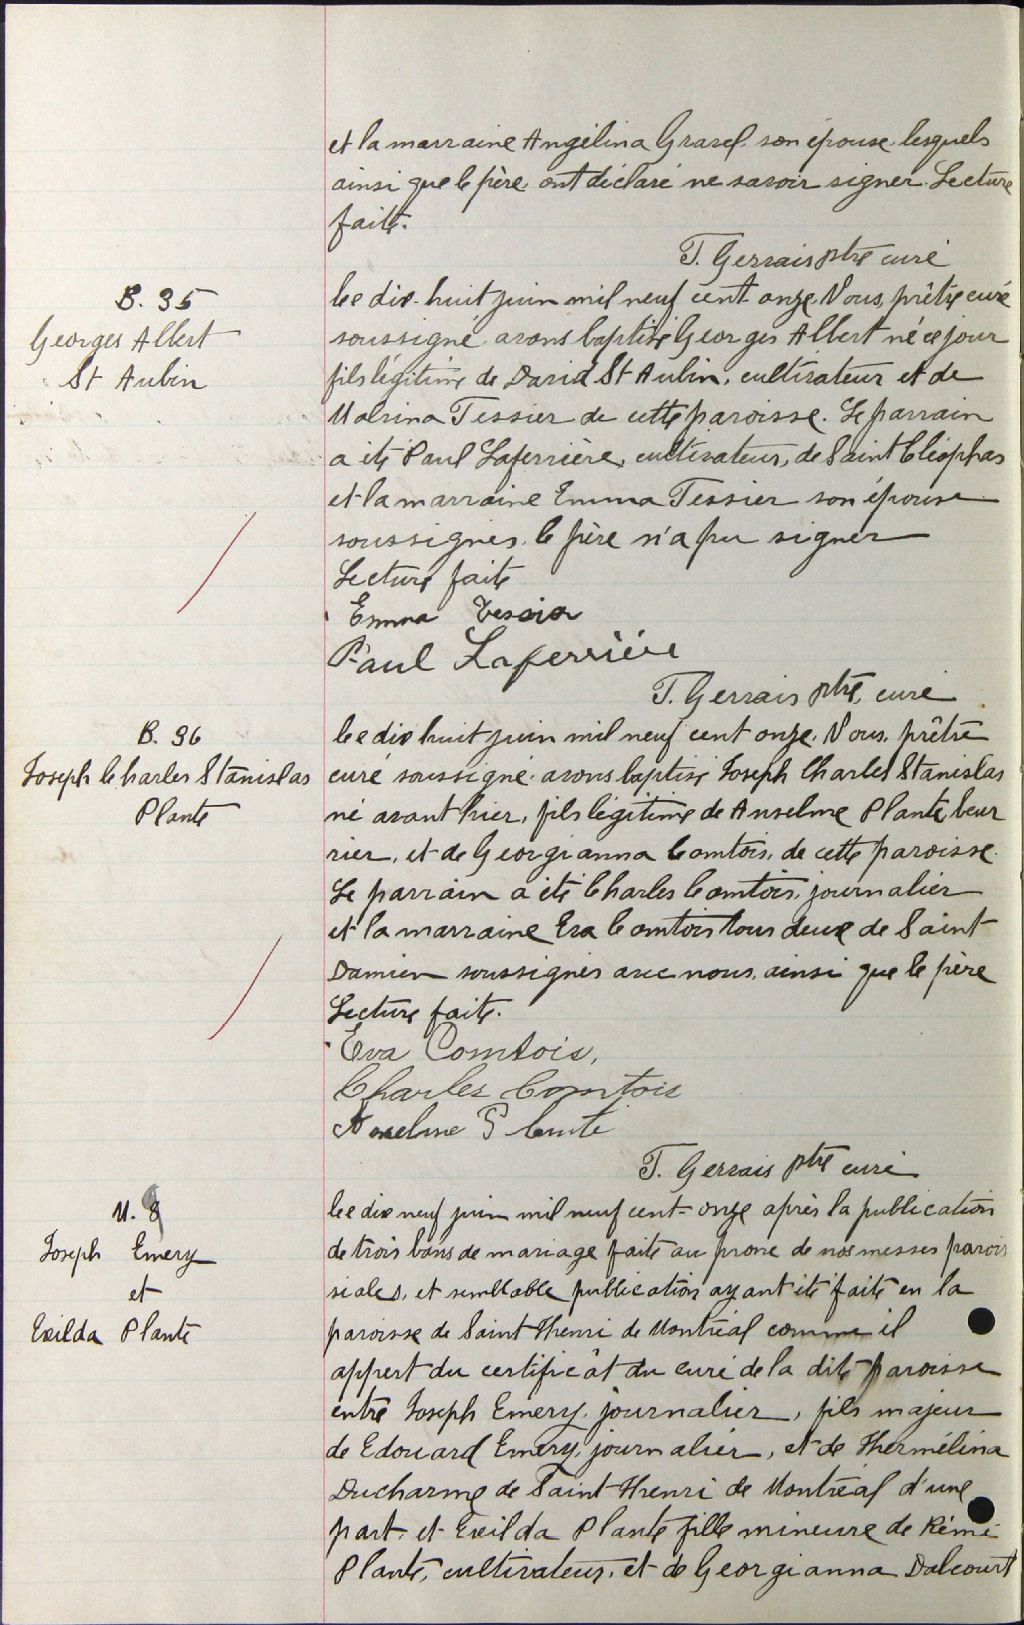 et la marraine Angélina Gravel son épouse lesquels
ainsi que le père ont déclaré ne savoir signer. Lecture
faite.
T. Gervais ptre curé
B. 35
Georges Albert
St Aubin
Le dix-huit juin mil neuf cent onze, Nous, prêtre curé
soussigné avons baptisé Georges Albert né ce jour
fils légitime de David St Aubin, cultivateur et de
Malvina Tessier de cette paroisse. Le parrain
a été Paul Laferrière, cultivateur, de Saint Cléophas
et la marraine Emma Tessier son épouse
soussignés. le père n'a pu signer
Lecture faite
Emma Tessier
Paul Laferrière
T. Gervais ptre, curé
B. 36
Joseph Charles Stanislas
Plante
Le dix huit juin mil neuf cent onze, Nous, prêtre
curé soussigné avons baptisé Joseph Charles Stanislas
né avant hier, fils légitime de Anselme Plante, beur
rier, et de Georgianna Comtois, de cette paroisse.
Le parrain a été Charles Comtois, journalier
et la marraine Eva Comtois tous deux de Saint
Damien soussignés avec nous, ainsi que le père
Lecture faite.
Eva Comtois,
Charles Comtois
Anselme Plante
T. Gervais ptre curé
M. 8
Joseph Emery
et
Exilda Plante
Le dix neuf juin mil neuf cent-onze après la publication
de trois bans de mariage faite au prone de nos messes parois
siales, et semblable publication ayant été faite en la
paroisse de Saint Henri de Montréal comme il
appert du certificat du curé de la dite paroisse
entre Joseph Emery, journalier, fils majeur
de Edouard Emery, journalier, et de Thermélina
Ducharme de Saint-Henri de Montréal d'une
part, et Exilda Plante fille mineure de Rémi
Plante, cultivateur, et de Georgianna Dalcourt